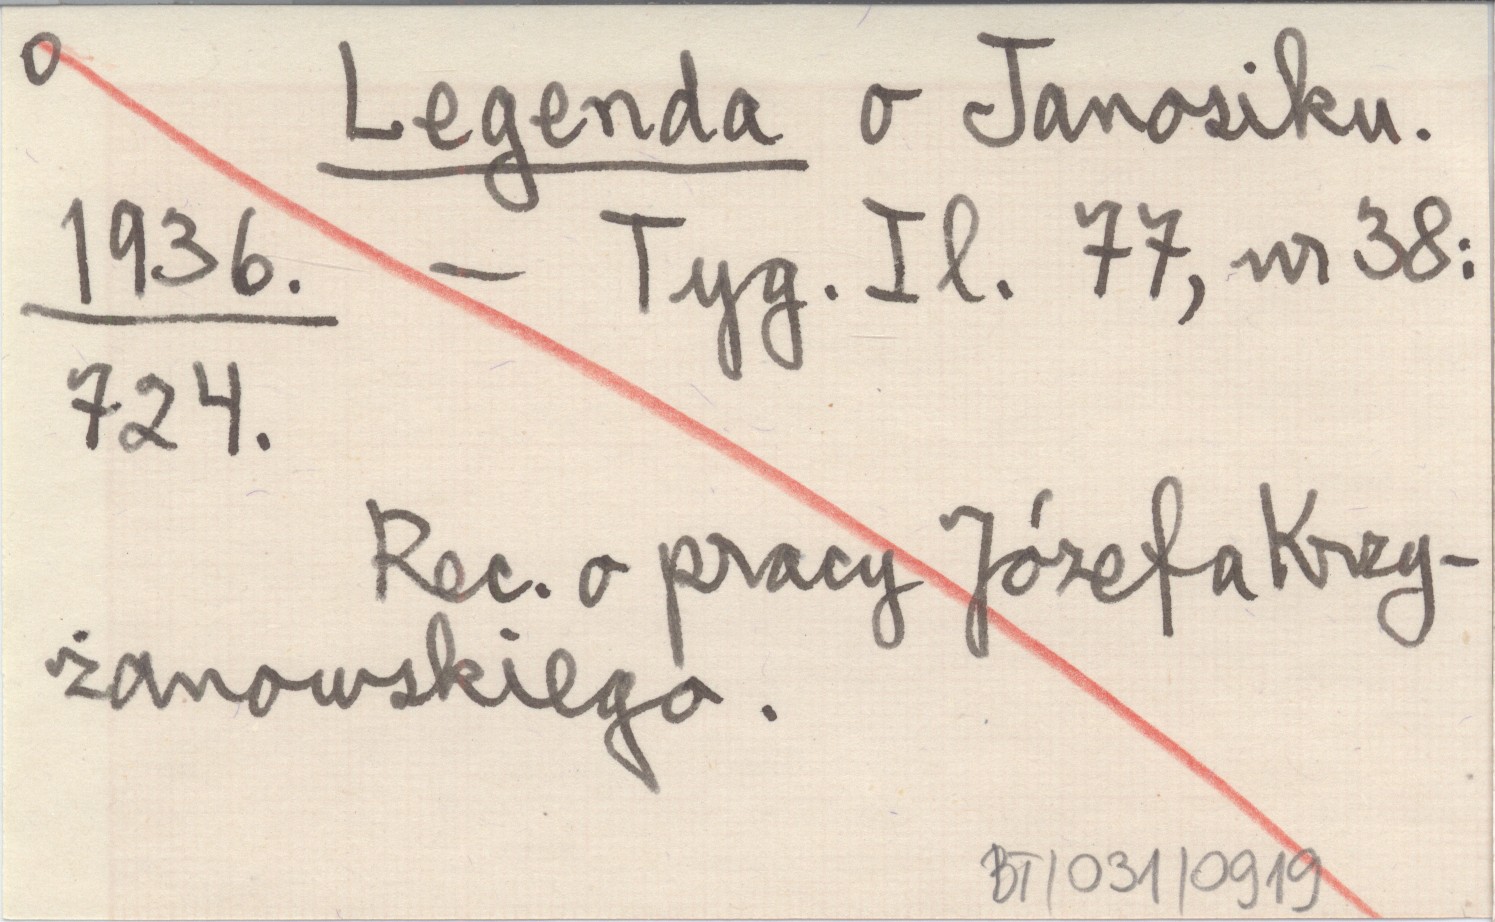 o Legenda o Janosiku.
1936. — Tyg. Il. 77, nr 38:
724.
Rec. o pracy Józefa Krzy-
żanowskiego.
BT/031/0919